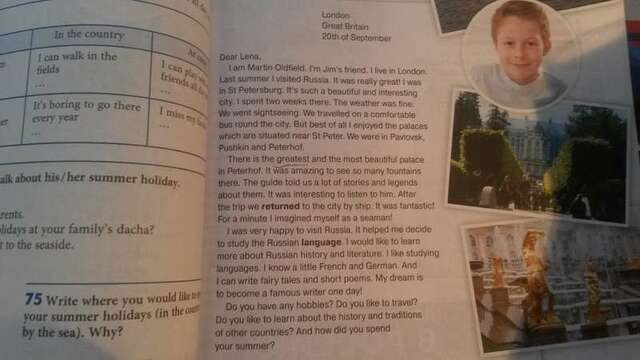 In the country
I can walk in the
fields
...
I can play
friends all da
...
It's boring to go there
every year
...
I miss my
...
alk about his/her summer holiday.
arents.
lidays at your family's dacha?
t to the seaside.
75 Write where you would like to
your summer holidays (in the
by the sea). Why?
London
Great Britain
20th of September
Dear Lena,
I am Martin Oldfield. I'm Jim's friend. I live in London.
Last summer I visited Russia. It was really great! I was
in St Petersburg. It's such a beautiful and interesting
city. I spent two weeks there. The weather was fine.
We went sightseeing. We travelled on a comfortable
bus round the city. But best of all I enjoyed the palaces
which are situated near St Peter. We were in Pavlovsk,
Pushkin and Peterhof.
There is the greatest and the most beautiful palace
in Peterhof. It was amazing to see so many fountains
there. The guide told us a lot of stories and legends
about them. It was interesting to listen to him. After
the trip we returned to the city by ship. It was fantastic!
For a minute I imagined myself as a seaman!
I was very happy to visit Russia. It helped me decide
to study the Russian language. I would like to learn
more about Russian history and literature. I like studying
languages. I know a little French and German. And
I can write fairy tales and short poems. My dream is
to become a famous writer one day!
Do you have any hobbies? Do you like to travel?
Do you like to learn about the history and traditions
of other countries? And how did you spend
your summer?